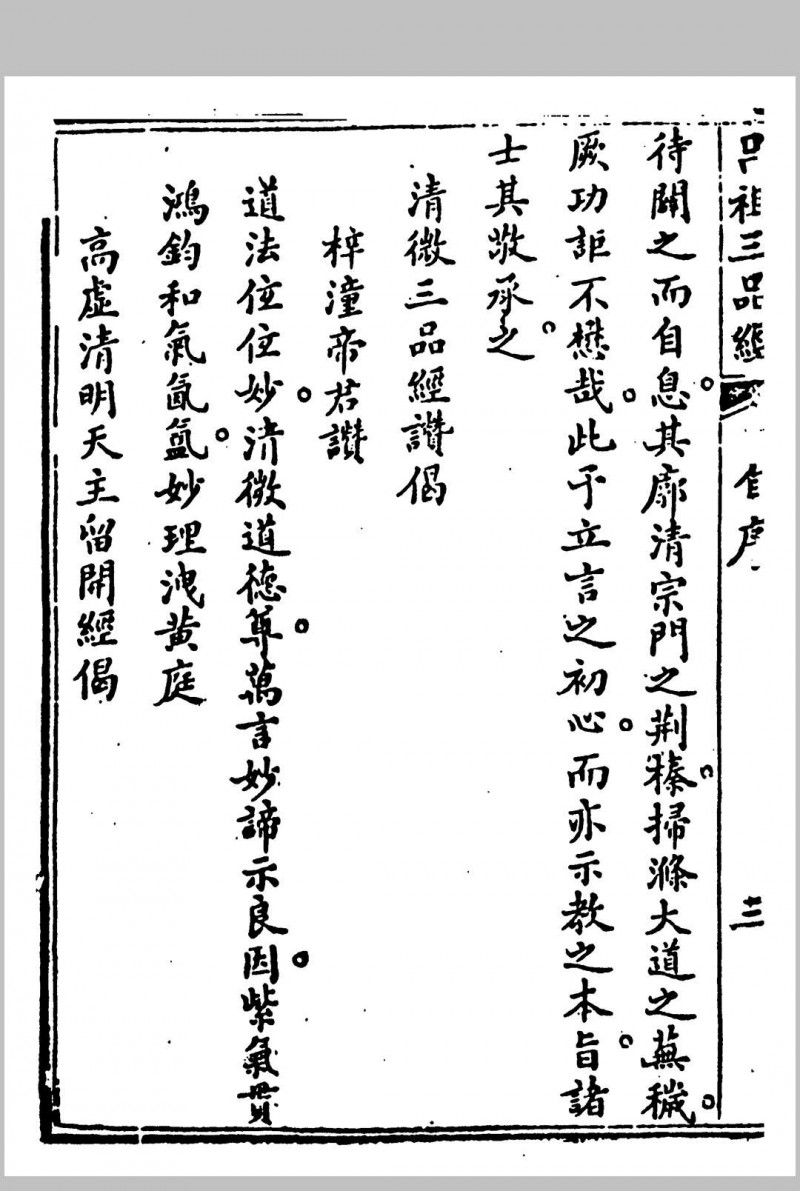 呂祖三品經 自序 三
待闢之而自息。其廓清宗門之荆榛。掃滌大道之蕪穢。
厥功詎不懋哉。此予立言之初心。而亦示教之本旨。諸
士其敬承之。
清微三品經讚偈
梓潼帝君讚
道法位位妙。清微道德尊。萬言妙諦示良因。紫氣貫
鴻鈞和氣氤氳。妙理洩黄庭
高虛清明天主留開經偈